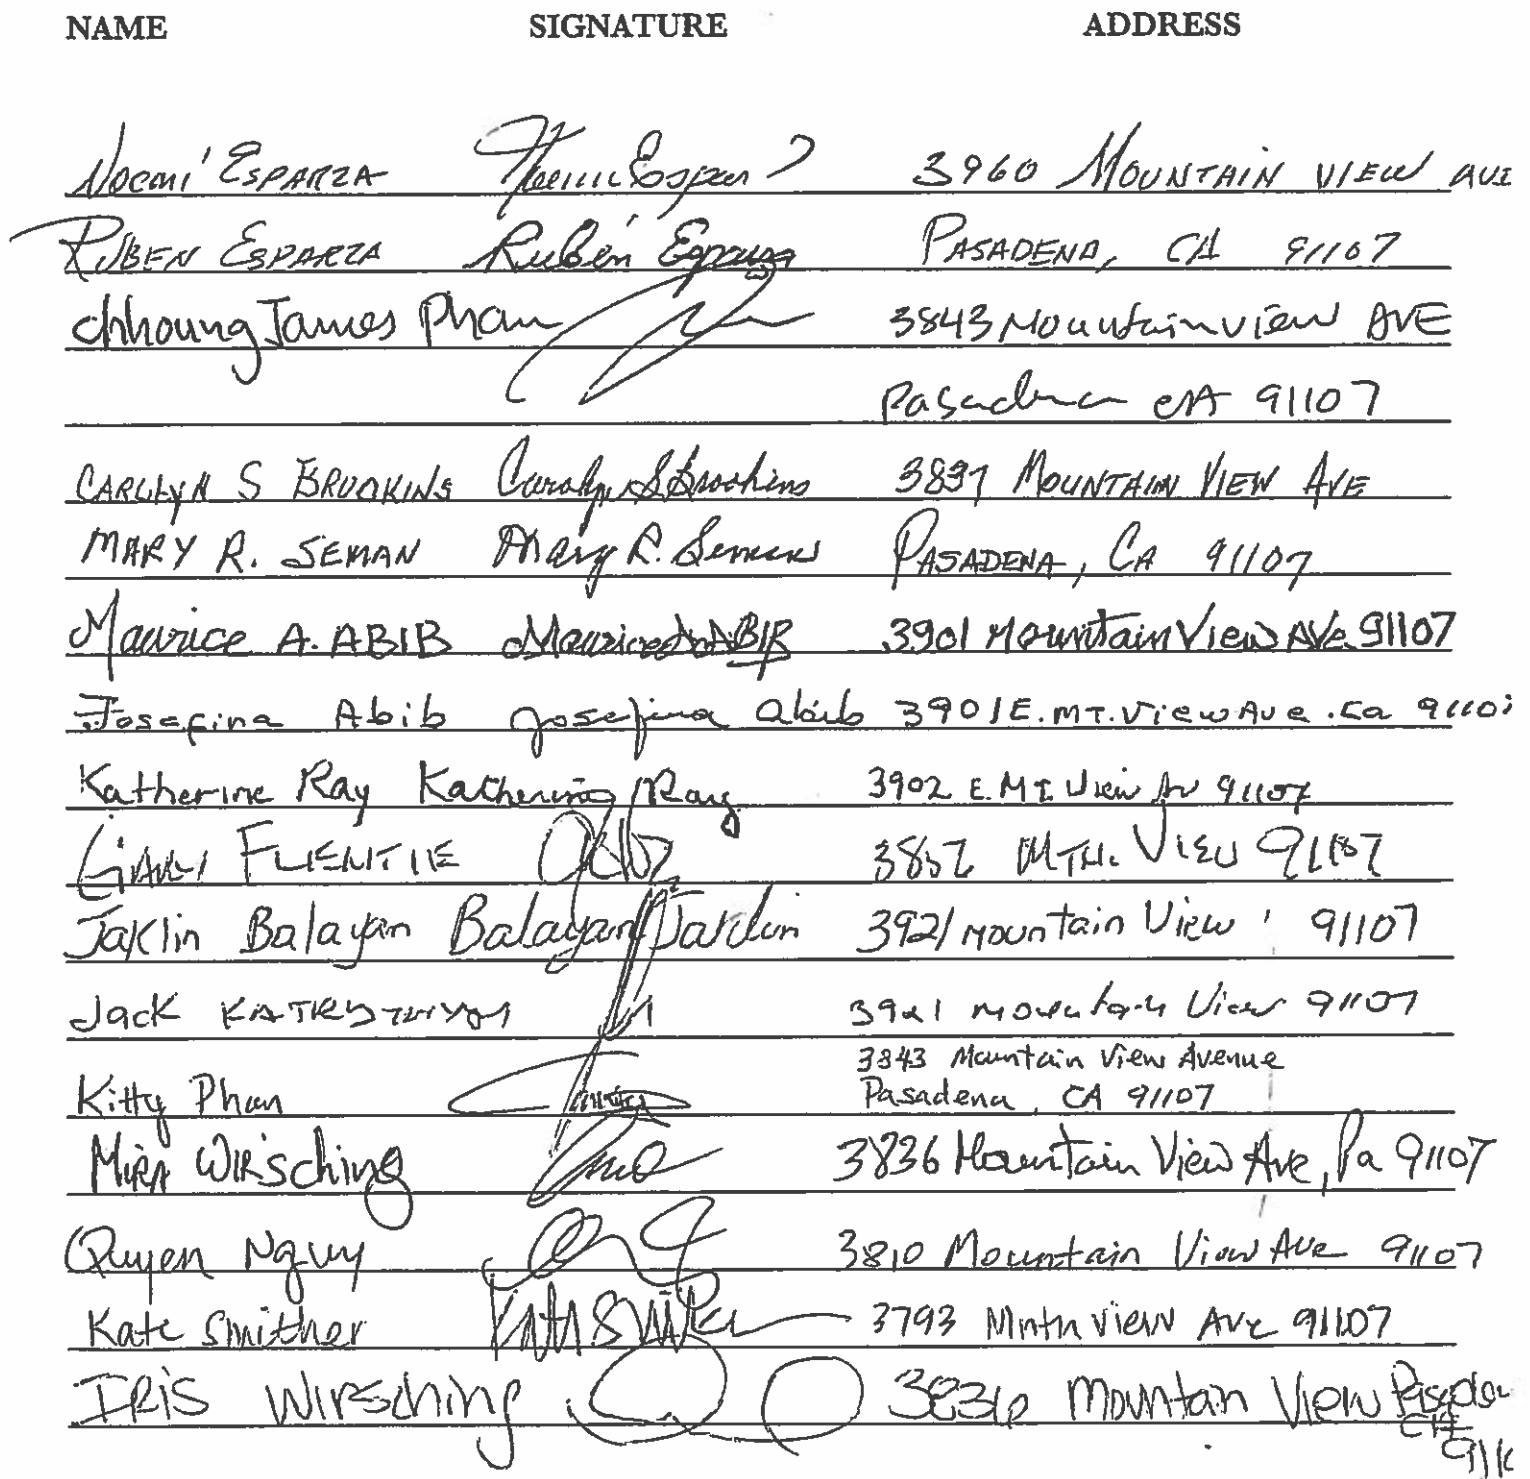 NAME SIGNATURE ADDRESS
Noemi ESPARZA 3960 MOUNTAIN VIEW AVE
RUBEN ESPARZA Rubén Esparza PASADENA, CA 91107
Chhoung James Phan 3843 Mountain View AVE
Pasadena CA 91107
CAROLYN S BROOKINS Carolyn S Brookins 3837 MOUNTAIN VIEW AVE
MARY R. SEMAN Mary R. Seman PASADENA, CA 91107
Maurice A. ABIB Maurice A. ABIB 3901 Mountain View AVe. 91107
Josefina Abib Josefina Abib 3901 E. MT. View Ave. Ca 9110
Katherine Ray Katherine Ray 3902 E. MT View Av 91107
FLIENTIE MTN. VIEW 91107
Jaklin Balayan Balayan Jaklin 3921 Mountain View 91107
Jack 3921 Mountain View 91107
3843 Mountain View Avenue
Kitty Phan Pasadena, CA 91107
Wirsching 3836 Mountain View Ave, Pa 91107
Quyen Nguy 3810 Mountain View Ave 91107
Kate Smither Kate Smither 3793 Mntn View Ave 91107
IRIS Wirsching 3836 Mountain View